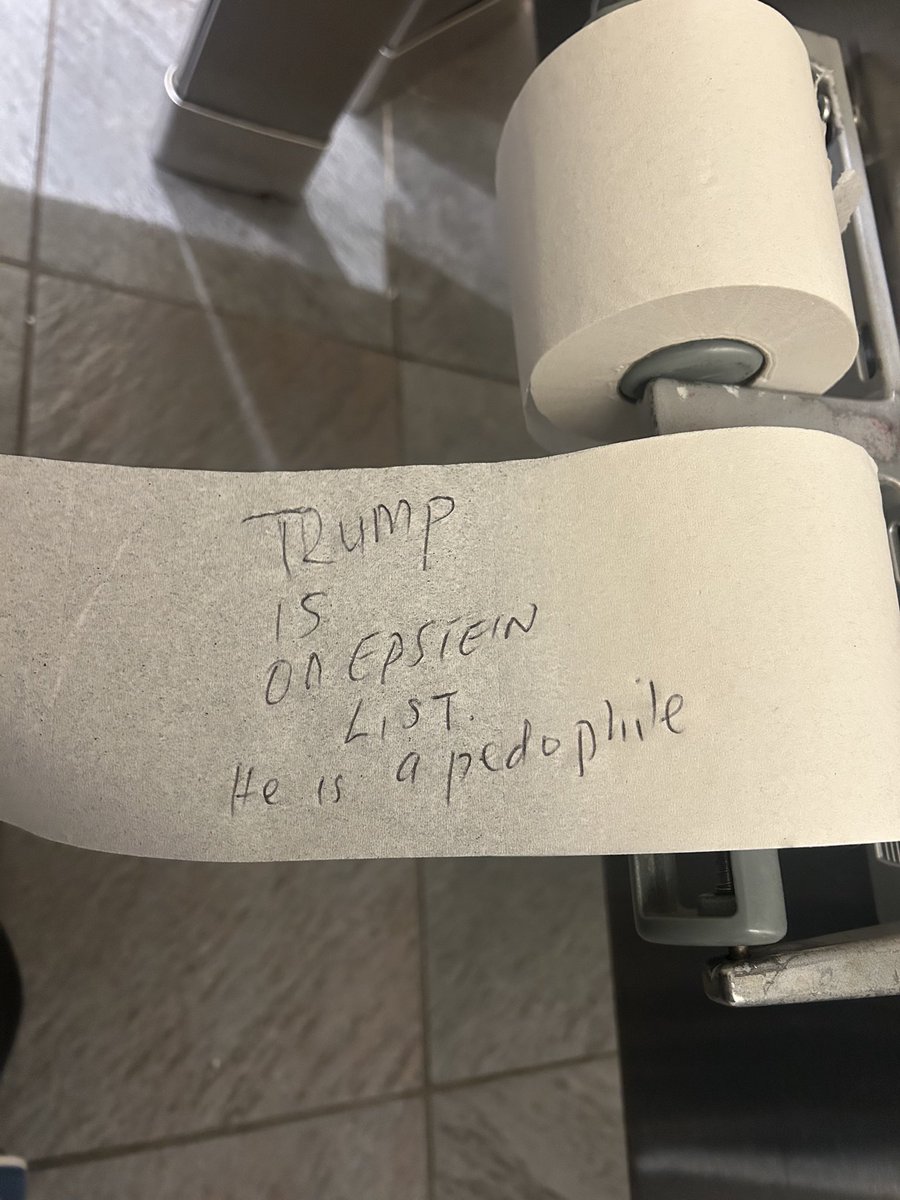 TRUMP
IS
On EPSTEIN
LIST.
He is a pedophile